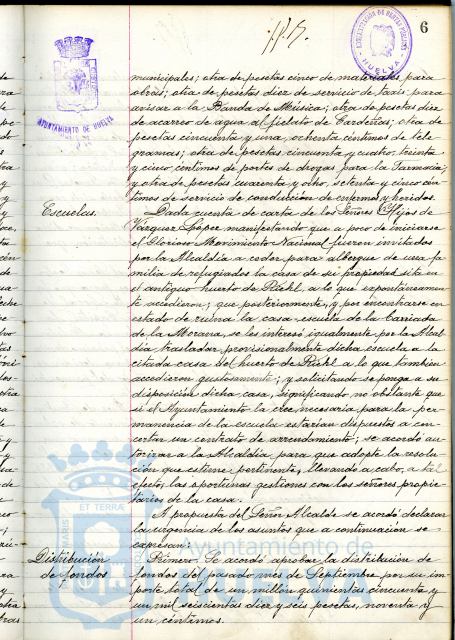 6
AYUNTAMIENTO DE HUELVA
HUELVA
municipales; otra de pesetas cinco de materiales para
obras; otra de pesetas diez de servicio de taxis para
avisar a la Banda de Música; otra de pesetas diez
de acarreo de agua al fielato de Cardeñas; otra de
pesetas cincuenta y una, ochenta céntimos de tele-
gramas; otra de pesetas, cincuenta y cuatro, treinta
y cinco céntimos de portes de drogas para la Farmacia;
y otra de pesetas cuarenta y ocho, setenta y cinco cén-
timos de servicio de conducción de enfermos y heridos.
Escuelas.
Dada cuenta de carta de los Señores Hijos de
Vázquez López manifestando que a poco de iniciarse
el Glorioso Movimiento Nacional fueron invitados
por la Alcaldía a ceder para albergue de una fa-
milia de refugiados la casa de su propiedad sita en
el antiguo huerto de a lo que expontáneamen-
te accedieron; que posteriormente, y por encontrarse en
estado de ruina la casa-escuela de la Barriada
de la Morana, se les interesó igualmente por la Alcal-
día trasladar provisionalmente dicha escuela a la
citada casa del huerto de a lo que también
accedieron gustosamente; y solicitando se ponga a su
disposición dicha casa, significando no obstante que
si el Ayuntamiento la cree necesaria para la per-
manencia de la escuela estarían dispuestos a con-
certar un contrato de arrendamiento; se acordó au-
torizar a la Alcaldía para que adopte la resolu-
ción que estime pertinente, llevando a cabo, a tal
efecto, las oportunas gestiones con los señores propie-
tarios de la casa.
A propuesta del Señor Alcalde se acordó declarar
la urgencia de los asuntos que a continuación se
expresan:
Distribución
de fondos
Primero. Se acordó aprobar la distribución de
fondos del pasado mes de Septiembre por su im-
porte total de un millón quinientas cincuenta y
un mil seiscientas diez y seis pesetas, noventa y
un céntimos.
ET TERRÆ
MARIS
Ayuntamiento de